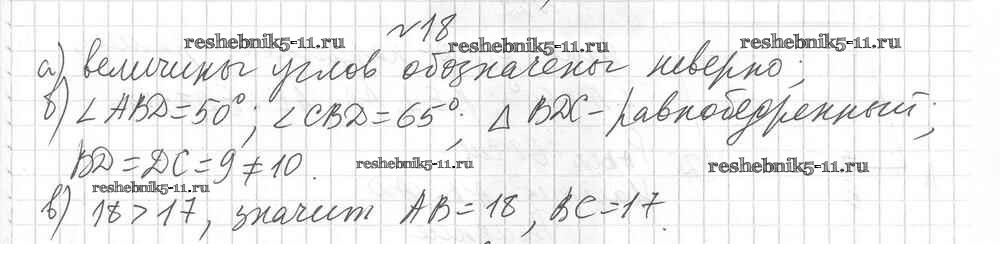 №18
reshebnik5-11.ru reshebnik5-11.ru reshebnik5-11.ru
а) величины углов обозначены неверно;
б) ∠ABD=50°; ∠CBD=65°; △ BDC - равнобедренный;
BD=DC=9≠10.
reshebnik5-11.ru reshebnik5-11.ru
reshebnik5-11.ru
в) 18>17, значит AB=18, BC=17.